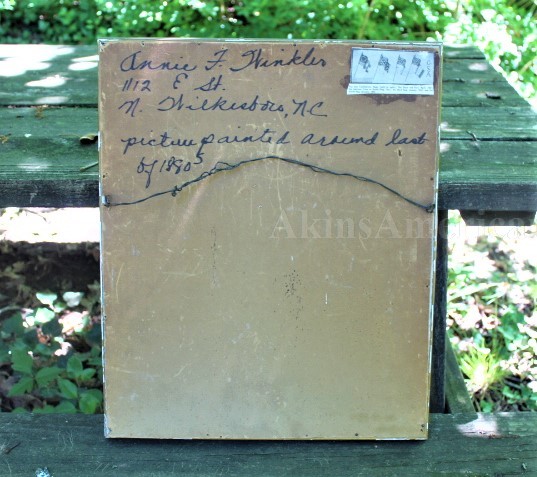 Annie F. Winkler
1112 E St.
N. Wilkesboro, NC
picture painted around last
of 1890s
AkinsAmerica